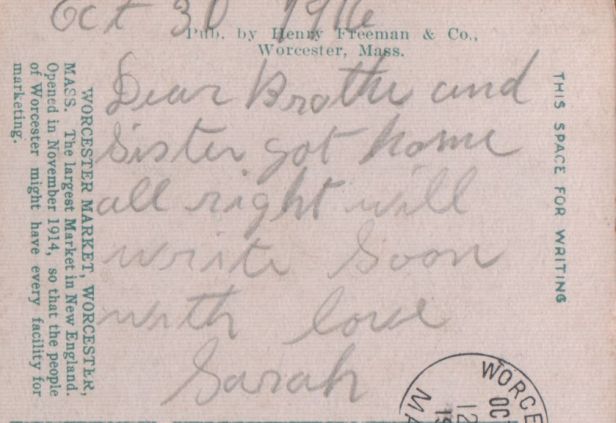 Oct 30 1916
Pub. by Henry Freeman & Co.,
Worcester, Mass.
Dear Brothe and
Sister got home
all right will
write Soon
with love
Sarah
WORCESTER MARKET, WORCESTER,
MASS. The largest Market in New England.
Opened in November 1914, so that the people
of Worcester might have every facility for
marketing.
THIS SPACE FOR WRITING
WORCE
OC
12
19
MA